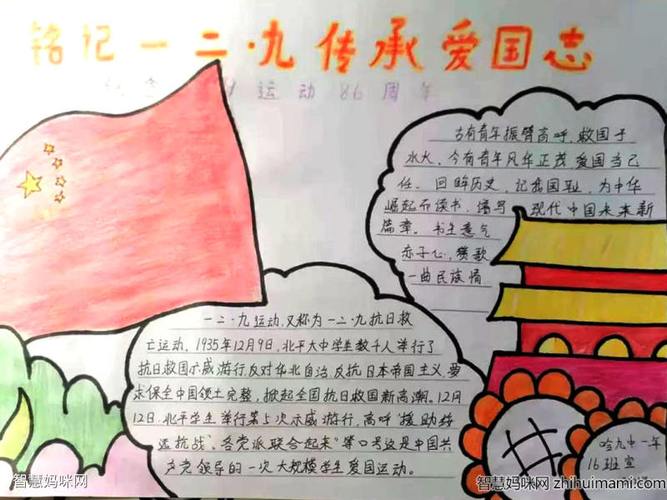 铭记一二·九传承爱国志
纪念 运动86周年
古有青年振臂高呼,救国于
水火,今有青年风华正茂爱国当己
任。回眸历史,记我国耻,为中华
崛起而读书,谱写现代中国未来新
篇章。书生意气
赤子心,赞歌
一曲民族情
一二·九运动,又称为一二·九抗日救
亡运动。1935年12月9日,北平大中学生数千人举行了
抗日救国示威游行,反对华北自治,反抗日本帝国主义,要
求保全中国领土完整,掀起全国抗日救国新高潮。12月
12日,北平学生举行第5次示威游行,高呼"援助绥
远抗战"、各党派联合起来"等口号这是中国共
产党领导的一次大规模学生爱国运动。
哈九中一年
16班宣
智慧妈咪网
智慧妈咪网 zhihuimami.com